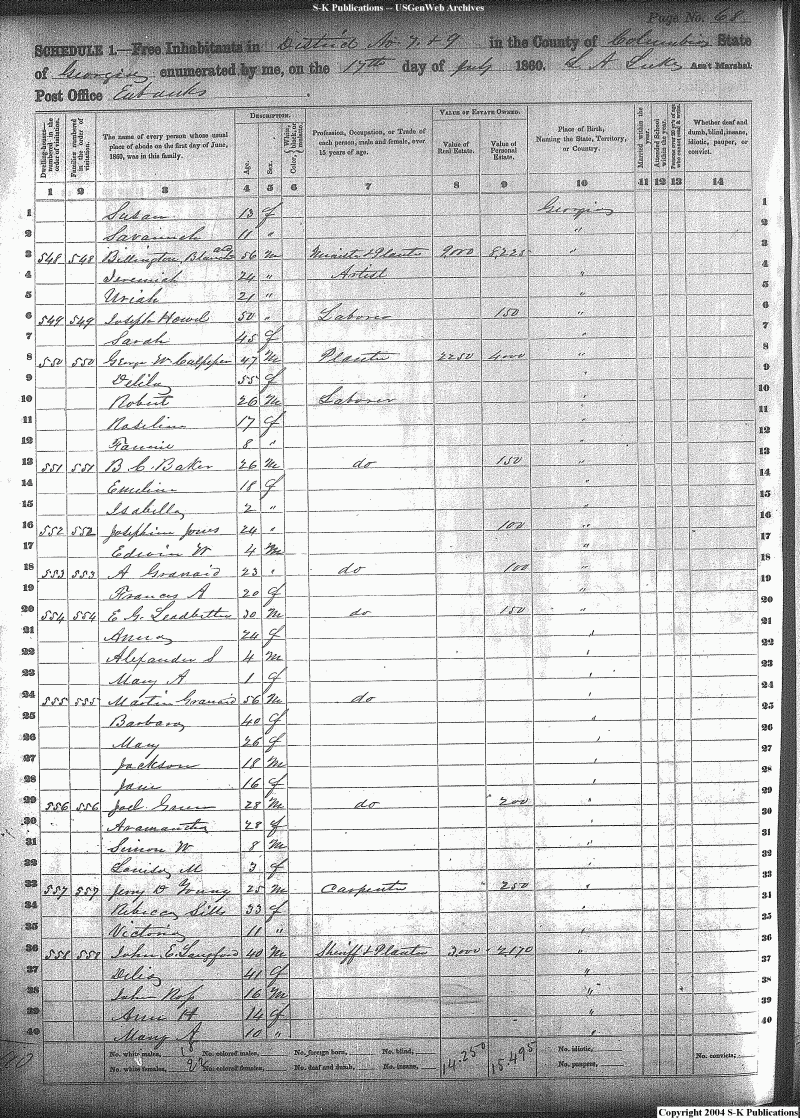 S-K Publications -- USGenWeb Archives
Page No. 68
SCHEDULE 1.—Free Inhabitants in District No 7 & 9 in the County of Columbia State
of Georgia enumerated by me, on the 17th day of July 1860. Ass't Marshal
Post Office Eubanks
DESCRIPTION. VALUE OF ESTATE OWNED.
Dwelling-houses— numbered in the order of visitation. Families numbered in the order of visitation. The name of every person whose usual place of abode on the first day of June, 1860, was in this family. Age. Sex. Color, Profession, Occupation, or Trade of each person, male and female, over 15 years of age. Value of Real Estate. Value of Personal Estate. Place of Birth, Naming the State, Territory, or Country. Married within the year. Attended School within the year. Whether deaf and dumb, blind, insane, idiotic, pauper, or convict.
1 2 3 4 5 6 7 8 9 10 11 12 13 14
1 Susan 13 f Georgia 1
2 Savannah 11 " " 2
3 548 548 Billington 56 m Minister & Planter 9000 8225 " 3
4 Jeremiah 24 " Artist " 4
5 Uriah 21 " " 5
6 549 549 Joseph Howel 50 " Laborer 150 " 6
7 Sarah 45 f " 7
8 550 550 George W Culpeper 47 m Planter 2250 4000 " 8
9 Delila 55 f " 9
10 Robert 26 m Laborer " 10
11 Roseline 17 f " 11
12 Fannie 8 " " 12
13 551 551 B C Baker 26 m do 150 " 13
14 Emeline 18 f " 14
15 Isabella 2 " " 15
16 552 552 Josephine Jones 24 " 100 " 16
17 Edwin W 4 m " 17
18 553 553 A 23 " do 100 " 18
19 Francis A 20 f " 19
20 554 554 E G Leadbetter 30 m do 150 " 20
21 Anna 24 f " 21
22 Alexander S 4 m " 22
23 Mary A 1 f " 23
24 555 555 Martin 56 m do " 24
25 Barbara 40 f " 25
26 Mary 26 f " 26
27 Jackson 18 m " 27
28 Jane 16 f " 28
29 556 556 Joel Green 28 m do 200 " 29
30 Aramantha 28 f " 30
31 Simon W 8 m " 31
32 Louisa M 3 f " 32
33 557 557 Jerry D Young 25 m Carpenter 250 " 33
34 Rebecca Sills 33 f " 34
35 Victoria 11 " " 35
36 558 558 John E Langford 40 m Sheriff & Planter 3000 2170 " 36
37 Delia 41 f " 37
38 John 16 m " 38
39 Ann H 14 f " 39
40 Mary A 10 " " 40
No. white males, 18 No. colored males, No. foreign born, No. blind, No. idiotic, No. convicts;
No. white females, 22 No. colored females, No. deaf and dumb, No. insane, 14.250 15.495 No. paupers,
Copyright 2004 S-K Publications